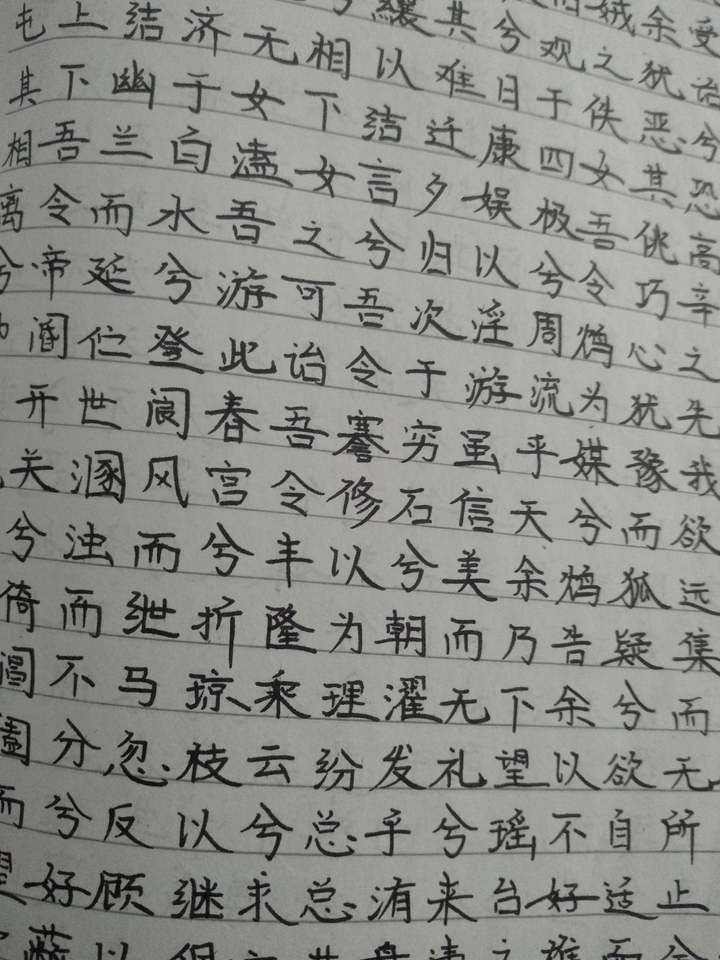 受诒兮恐高辛之先我欲远集而无所止
余犹恶其佻巧心犹豫而狐疑兮欲自适而
娀之佚女吾令鸩为媒兮鸩告余以不好
观于四极兮周流乎天余乃下望瑶台之
兮日康娱以淫游虽信美而无礼兮来违
其难迁夕归次于穷石兮朝濯发乎洧盘
纕以结言兮吾令蹇修以为理纷总总其
相下女之可诒吾令丰隆乘云兮求
无女溘吾游此春宫兮折琼枝以继
济于白水兮登阆风而绁马忽反顾以
结幽兰而延伫世溷浊而不分兮好蔽
上下吾令帝阍开关兮倚阊阖而望
屯其相离兮